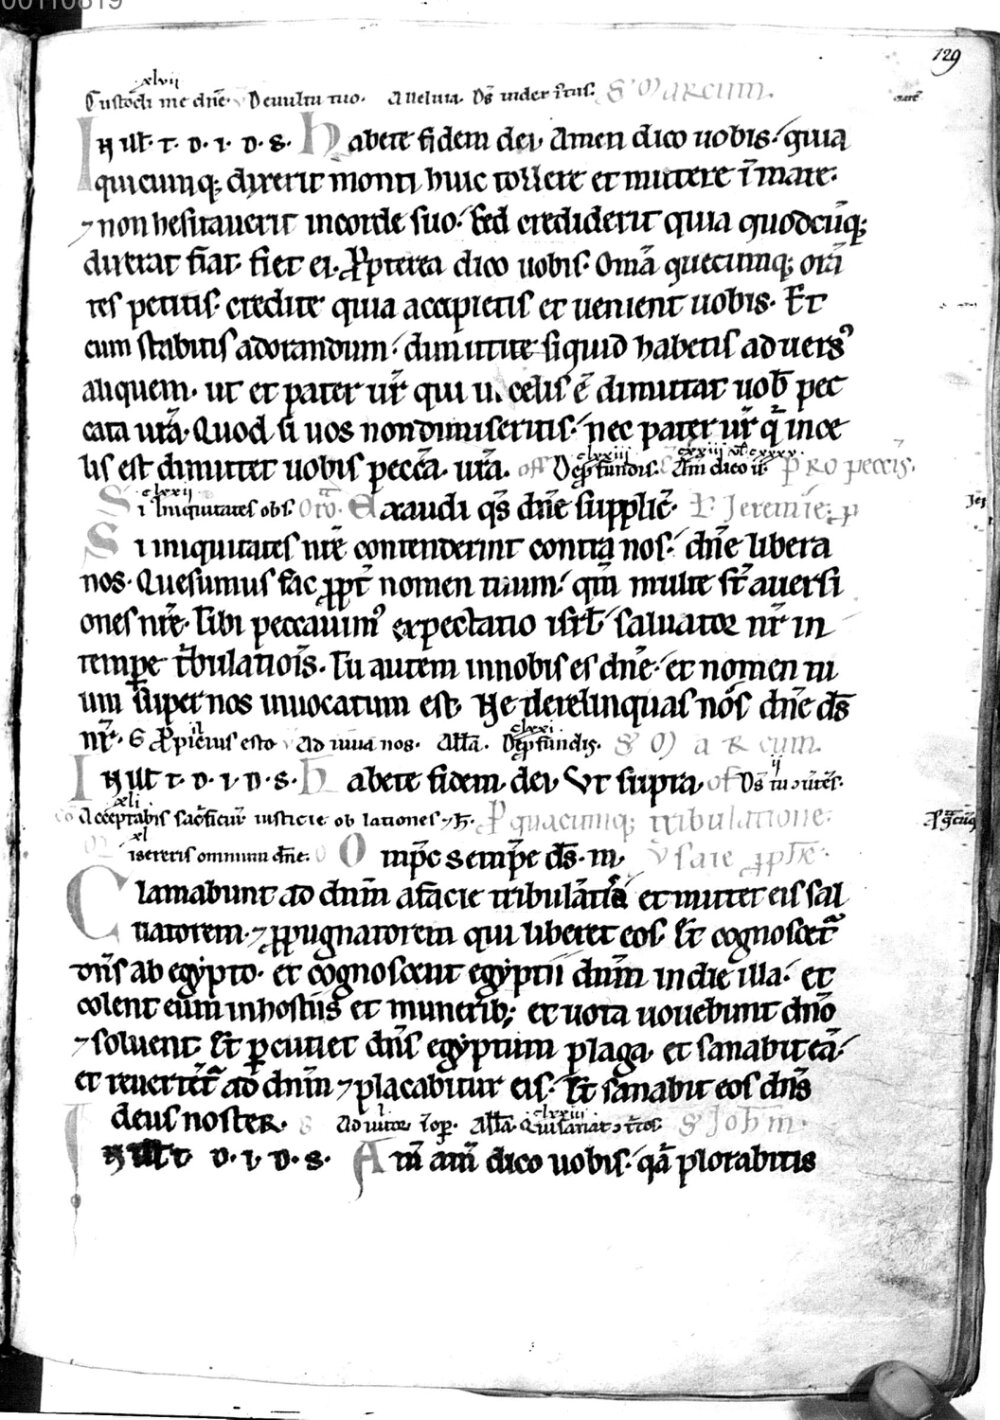 00110819
129
xlvii
Custodi me dn̄e. v Deuultu tuo. Alleluia. Ds̄ iudex iustus. S̄ Marcum.
In illt. d. i. d. s. Habete fidem dei. Amen dico uobis. quia
quicumq; dixerit monti huic tollere et mittere ī mare.
⁊ non hesitauerit incorde suo. Sed crediderit quia quodcūq;
dixerat fiat. fiet ei. Propterea dico uobis. Omīa quecumq; orā
tes petitis. credite quia accipietis et uenient uobis. Et
cum stabitis adorandum. dimittite siquid habetis aduersꝰ
aliquem. ut et pater ur̄ qui celis ē dimittat uob̄ pec
cata ur̄a. Quod si uos nondimiseritis. nec pater ur̄ q̄ ince
lis est dimittet uobis pecc̄a. ur̄a. off Deprofundis. Am̄ dico u. PRO peccis̄.
clxxii
Si Iniquitates obs. Orō. Exaudi qs̄ dn̄e supplic̄. L Jeremie. p̄
Si iniquitates nr̄e contenderint contra nos. dn̄e libera
nos. Quesumus fac ppt̄ nomen tuum. qm̄ multe st̄ auersi
ones nr̄e. Tibi peccauimꝰ expectatio isrl̄. saluator nr̄ in
tempore tribulatiois̄. Tu autem innobis es dn̄e. et nomen tu
um super nos inuocatum est. Ne derelinquas nos dn̄e ds̄
nr̄. G Propicius esto v Adiuua nos. All̄a. Deprofundis. S̄ Marcum.
In illt. d. i. d. s. Habete fidem dei. Vt supra. of Ds̄ tu
xli
cō Acceptabis sacrificiū iusticie oblationes ⁊ h̄. P quacumq; tribulatione.
xl
Misereris omnium dn̄e. O Omp̄c sempꝰe ds̄. in. Ysaie pph̄e.
Clamabunt ad dnm̄ afacie tribulātis et mittet eis sal
uatorem. ⁊ propugnatorem qui liberet eos. Et cognoscet̄
dn̄s ab egypto. et cognoscent egyptii dnm̄ in die illa. et
colent eum inhostiis et munerib; et uota uouebunt dn̄o
⁊ soluent. Et percutiet dn̄s egyptum plaga. et sanabit eā.
et reuertēt ad dnm̄ ⁊ placabitur eis. Et sanabit eos dn̄s
deus noster. G Ad All̄a. Quisanat 9tritos S̄ Joh̄m.
In illt d. i. d. s. Am̄ am̄ dico uobis. qa plorabitis